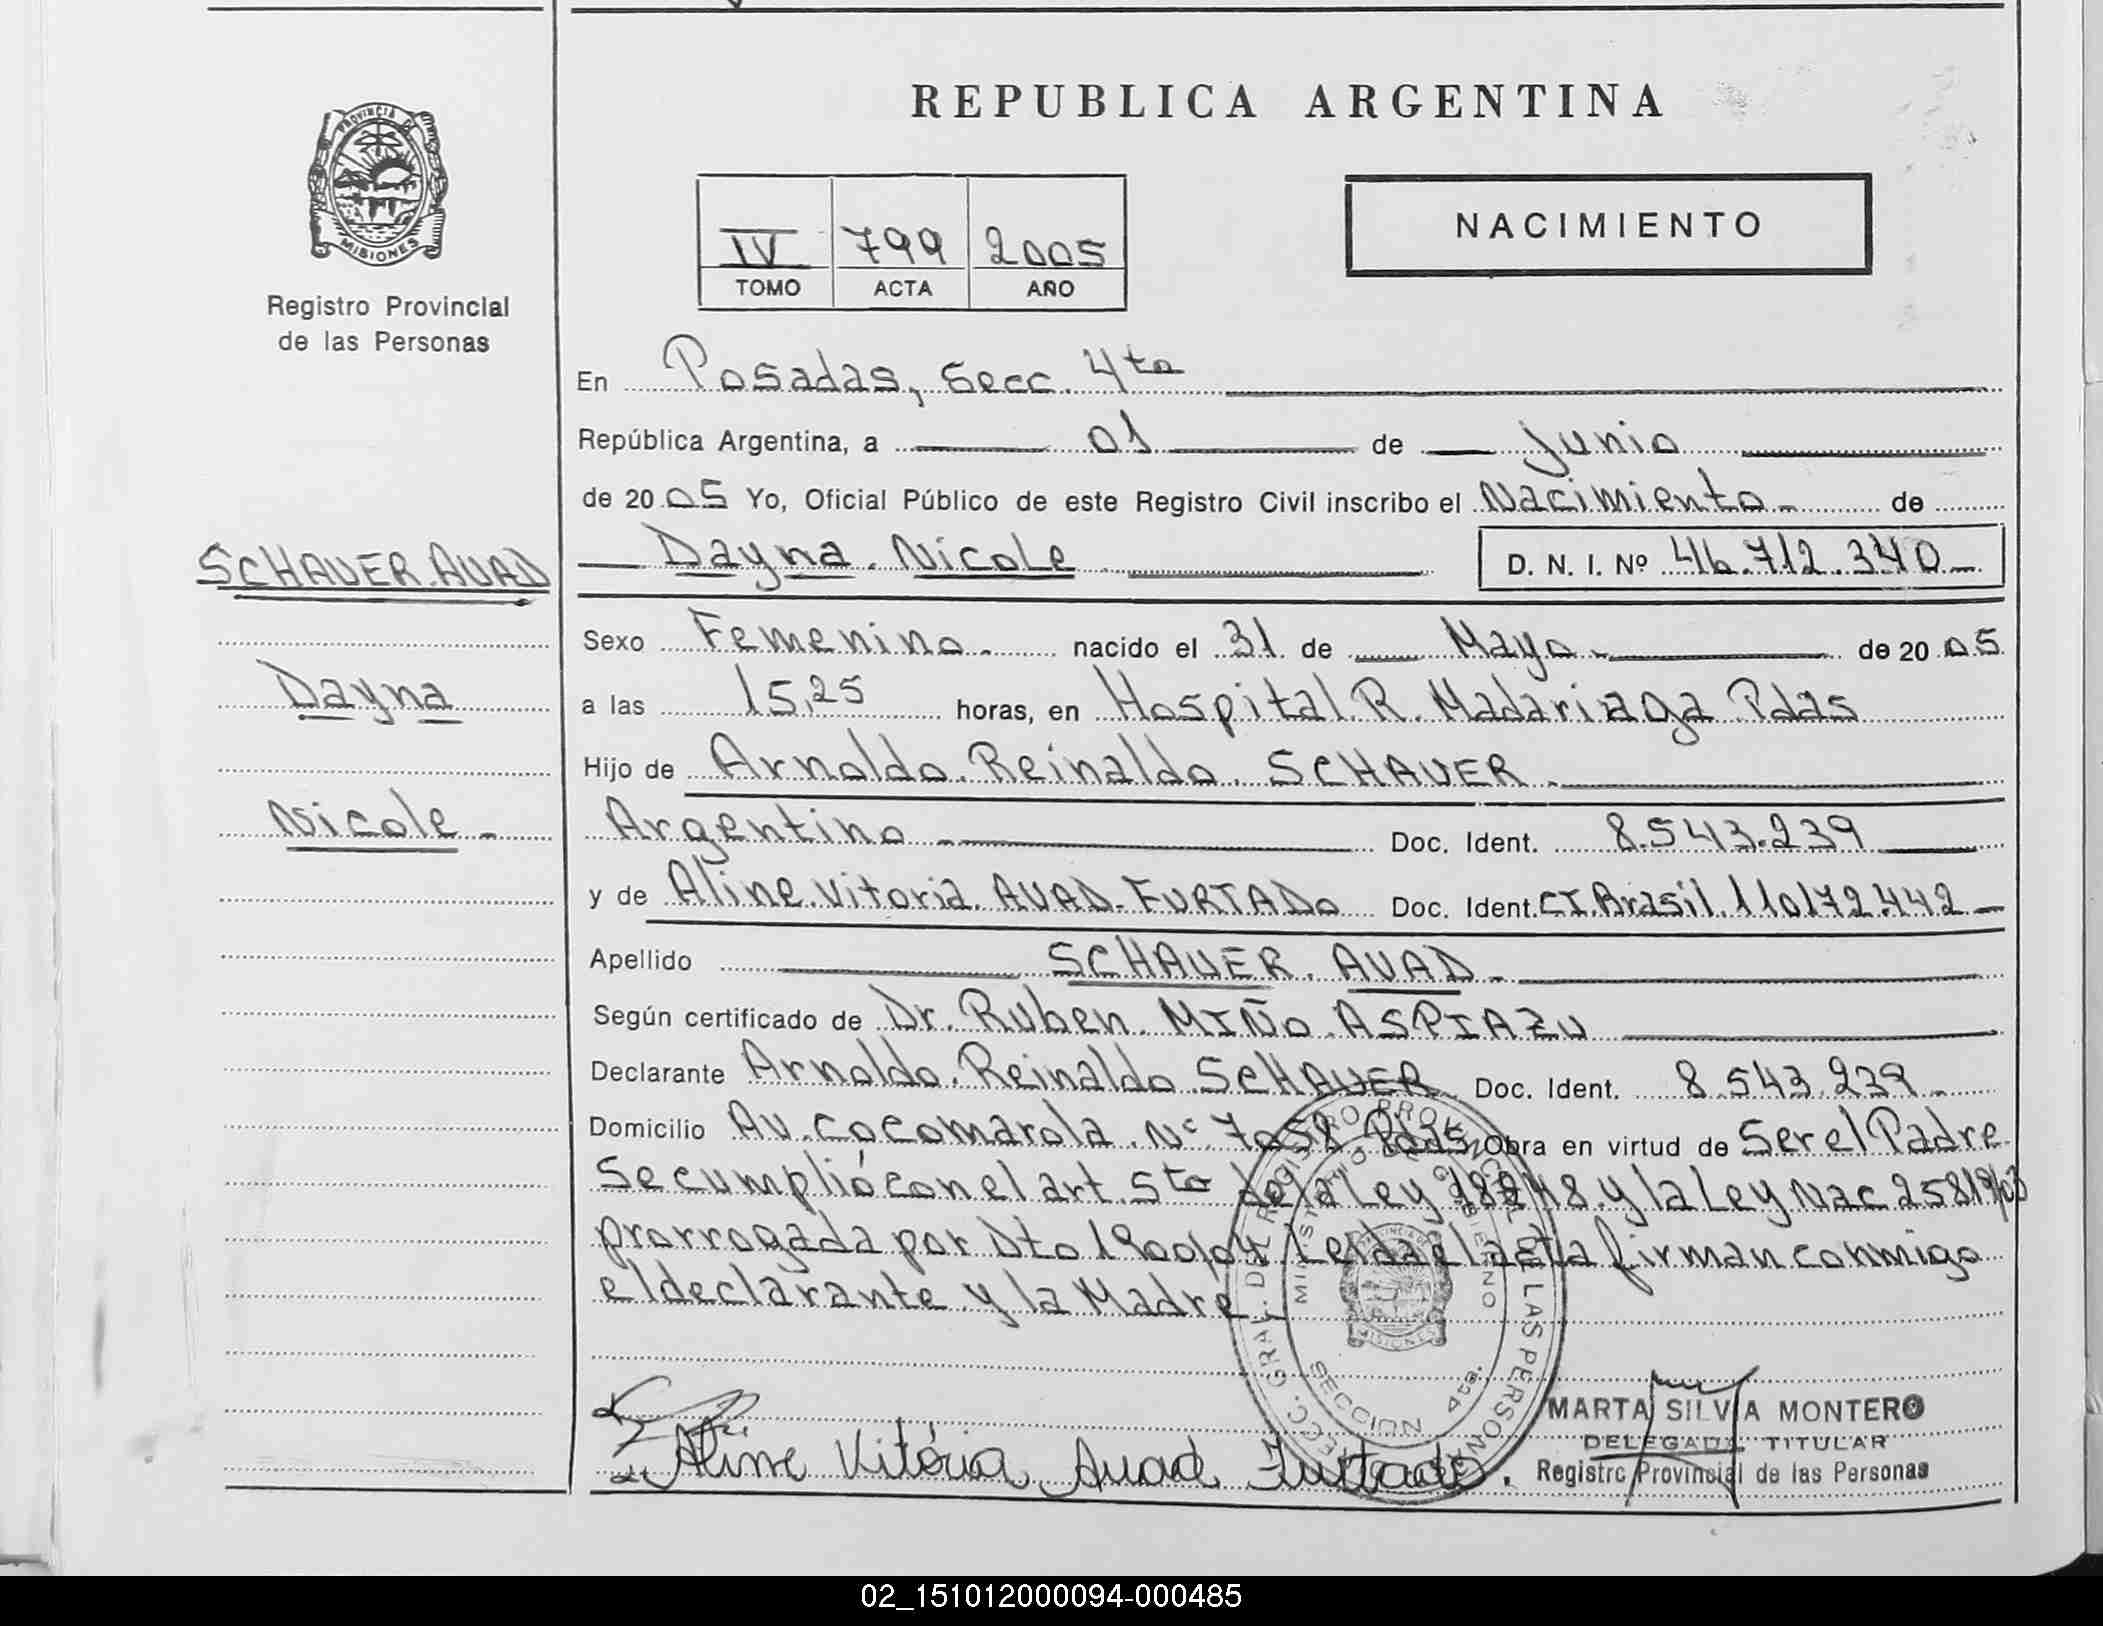 REPUBLICA ARGENTINA
PROVINCIA DE
MISIONES
Registro Provincial
de las Personas
NACIMIENTO
IV 799 2005
TOMO ACTA AÑO
En Posadas, Secc. 4ta
República Argentina, a 01 de Junio
de 2005 Yo, Oficial Público de este Registro Civil inscribo el Nacimiento - de
Dayna Nicole D. N. I. Nº 46.712.340
SCHAUER AUAD
Dayna
Nicole -
Sexo Femenino - nacido el 31 de Mayo - de 2005
a las 15,25 horas, en Hospital R. Madariaga Pdas
Hijo de Arnoldo Reinaldo SCHAUER -
Argentino - Doc. Ident. 8.543.239
y de Aline Vitoria AUAD - FURTADO Doc. Ident. CI. Brasil 110172.442 -
Apellido SCHAUER AUAD -
Según certificado de Dr. Ruben MIÑO ASPIAZU
Declarante Arnoldo Reinaldo SCHAUER Doc. Ident. 8.543.239 -
Domicilio Av. Cocomarola Nº 7058 Pdas Obra en virtud de Ser el Padre
Se cumplió con el art. 5to de la Ley 18248 y la Ley Nac 25819/03
prorrogada por Dto 1900/04 Leida el acta firman conmigo
el declarante y la Madre -
DIRECC. GRAL. DEL REGISTRO PROVINCIAL DE LAS PERSONAS
MINISTERIO DE GOBIERNO
PROVINCIA DE
MISIONES
SECCION 4ta.
Aline Vitória Auad Furtado.
MARTA SILVIA MONTERO
DELEGADA TITULAR
Registro Provincial de las Personas
02_151012000094-000485